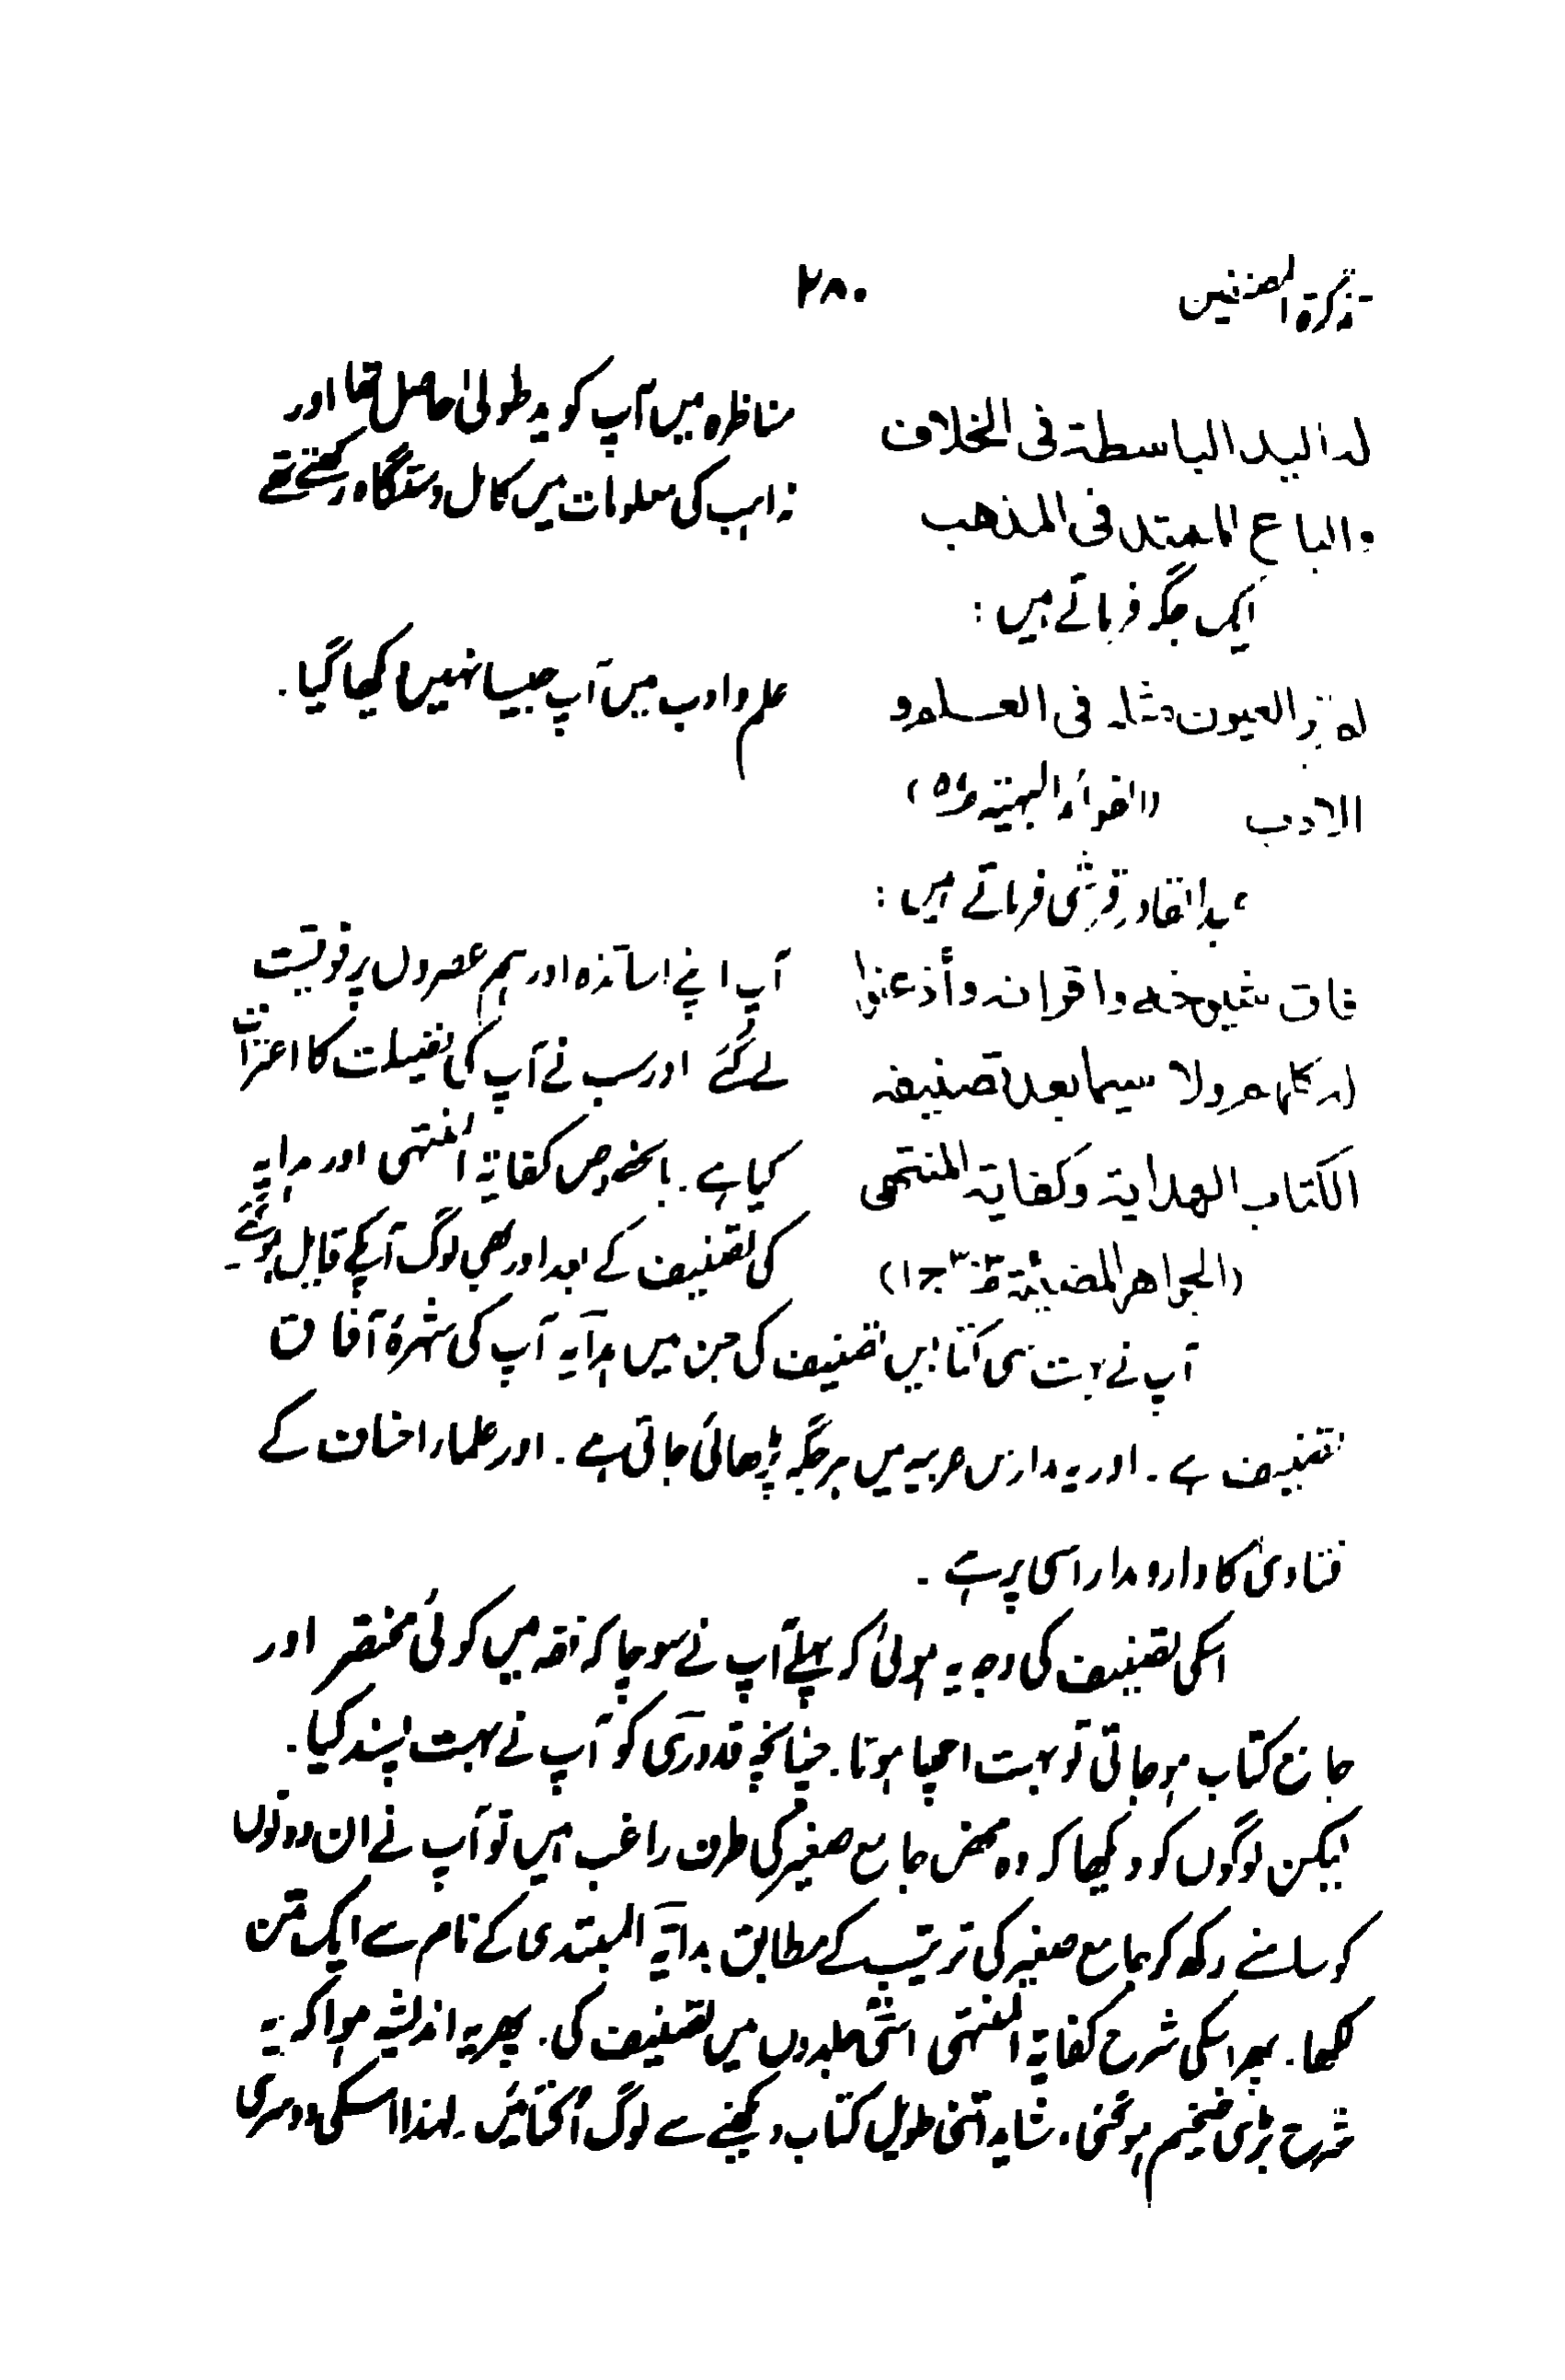 تذکرۃ المصنفین ۲۸۰
لہ الید الباسطۃ فی الخلاف
والباع الممتد فی المذھب
مناظرہ میں آپ کو ید طولیٰ حاصل تھا اور
مذاہب کی معلومات میں کامل دستگاہ رکھتے تھے
ایک جگہ فرماتے ہیں :
لم تر العیون مثلہ فی العلم و
الادب (الفوائد البہیۃ
علم و ادب میں آپ جیسا نہیں دیکھا گیا۔
عبد القادر قرشی فرماتے ہیں :
فاق شیوخہ واقرانہ وأذعنوا
لہ کلھم ولا سیما بعد تصنیفہ
الکتاب الھدایۃ وکفایۃ المنتھی
(الجواھر المضیئۃ ج۱)
آپ اپنے اساتذہ اور ہم عصروں پر فوقیت
لے گئے اور سب نے آپ کی فضیلت کا اعتراف
کیا ہے۔ بالخصوص کفایۃ المنتہی اور ہدایہ
کی تصنیف کے بعد اور بھی لوگ آپکے قایل ہو گئے۔
آپ نے بہت سی کتابیں تصنیف کی جن میں ہدایہ آپ کی شہرۂ آفاق
تصنیف ہے۔ اور یہ مدارس عربیہ میں ہر جگہ پڑھائی جاتی ہے۔ اور علماء احناف کے
فتاویٰ کا دارومدار اسی پر ہے۔
اسکی تصنیف کی وجہ یہ ہوئی کہ پہلے آپ نے سوچا کہ فقہ میں کوئی مختصر اور
جامع کتاب ہو جاتی تو بہت اچھا ہوتا۔ چنانچہ قدوری کو آپ نے بہت پسند کیا۔
لیکن لوگوں کو دیکھا کہ وہ محض جامع صغیر کی طرف راغب ہیں تو آپ نے ان دونوں
کو سامنے رکھ کر جامع صغیر کی ترتیب کے مطابق بدایۃ المبتدی کے نام سے ایک متن
لکھا۔ پھر اسکی شرح کفایۃ المنتہی اسّی جلدوں میں تصنیف کی۔ پھر یہ اندیشہ ہوا کہ یہ
شرح بڑی ضخیم ہو گئی۔ شاید اتنی طویل کتاب دیکھنے سے لوگ اُکتائیں۔ لہذا اسکی دوسری